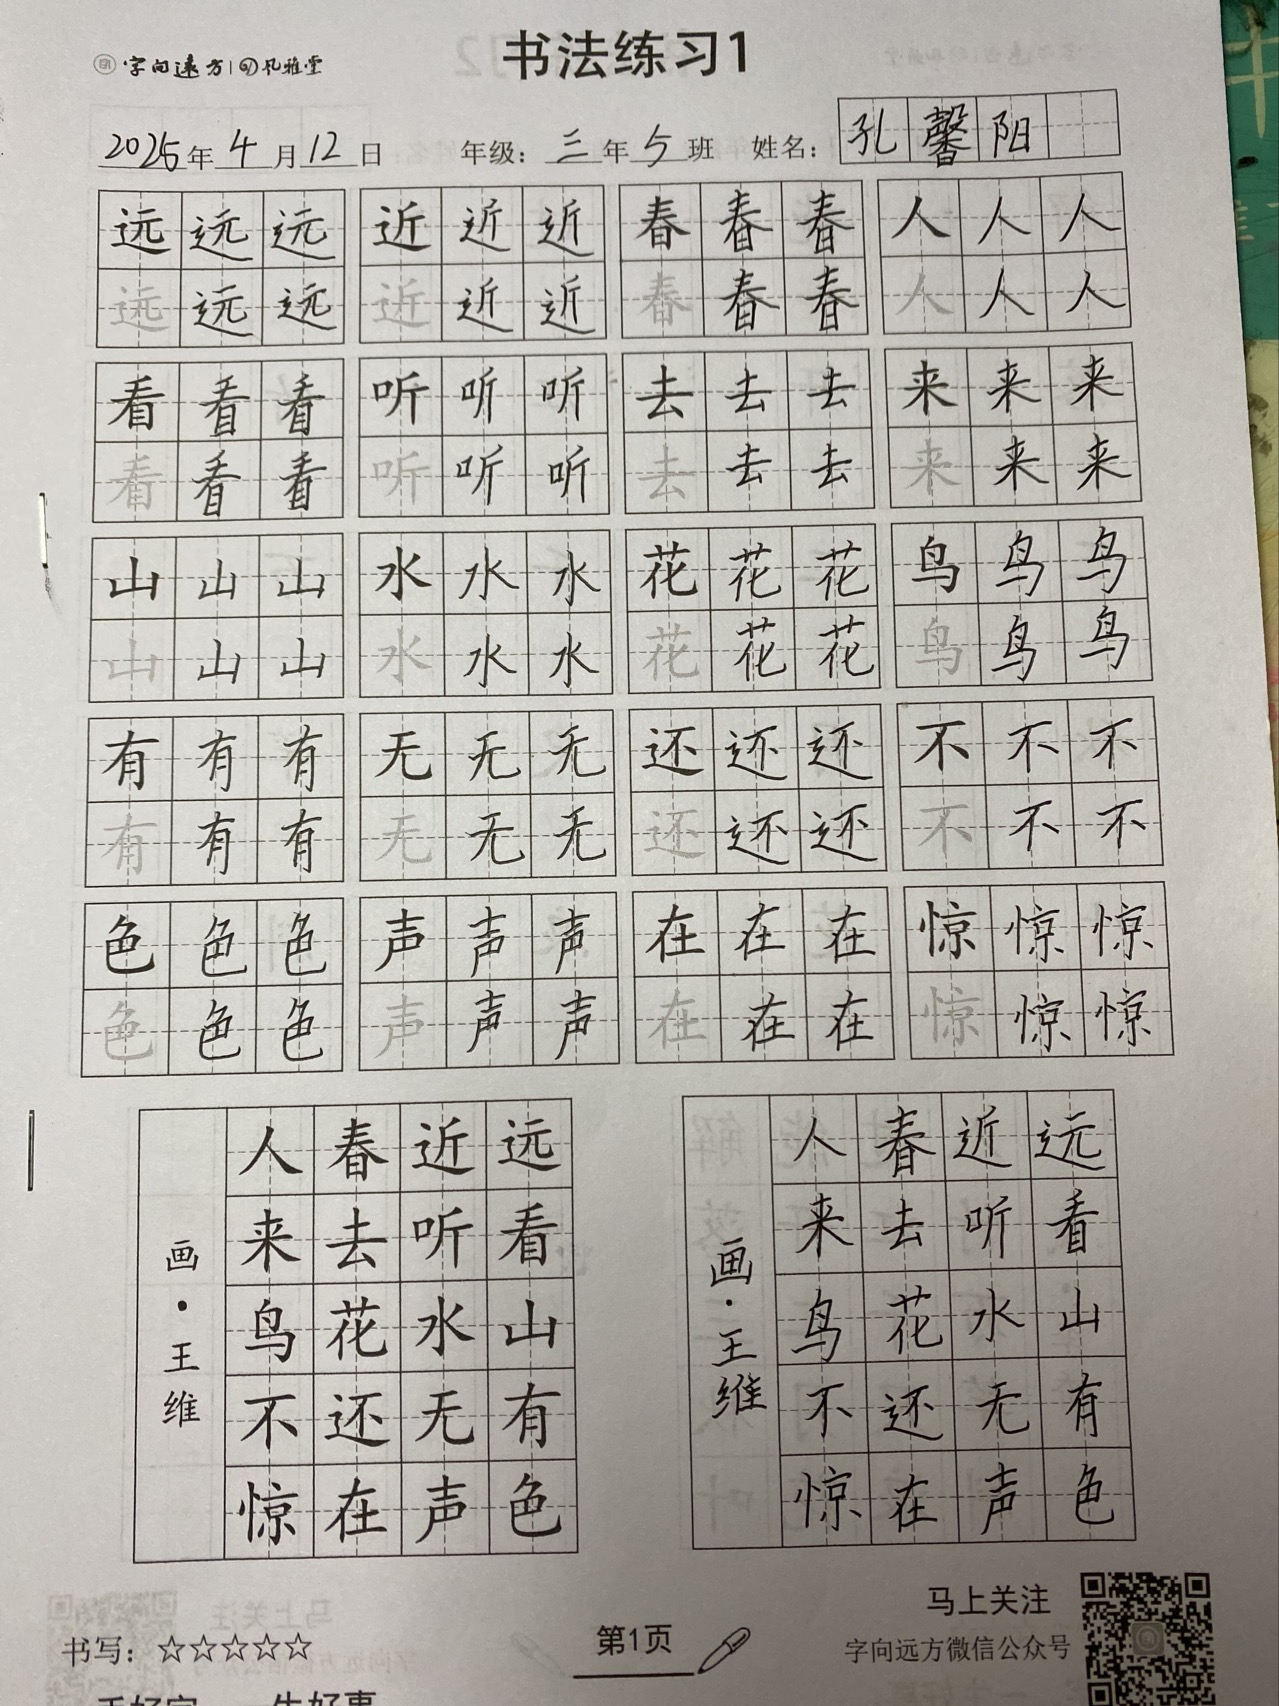 字向远方 孔雅堂
书法练习1
2025年4月12日 年级：三年5班 姓名：孔馨阳
远远远 近近近 春春春 人人人
远远远 近近近 春春春 人人人
看看看 听听听 去去去 来来来
看看看 听听听 去去去 来来来
山山山 水水水 花花花 鸟鸟鸟
山山山 水水水 花花花 鸟鸟鸟
有有有 无无无 还还还 不不不
有有有 无无无 还还还 不不不
色色色 声声声 在在在 惊惊惊
色色色 声声声 在在在 惊惊惊
远看山有色
近听水无声
春去花还在
人来鸟不惊
画·王维
远看山有色
近听水无声
春去花还在
人来鸟不惊
画·王维
马上关注
书写：☆☆☆☆☆ 第1页 字向远方微信公众号